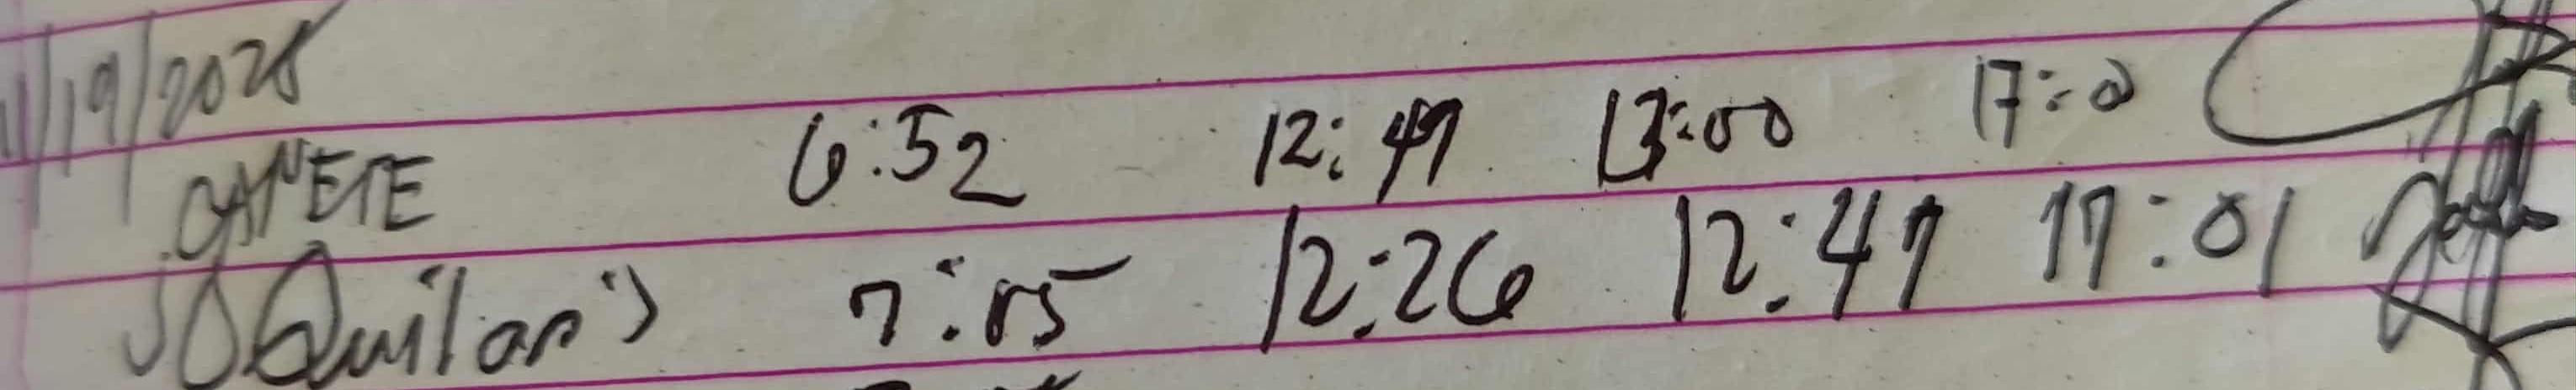 11/19/2025
CANETE 6:52 12:49 13:00 17:00
JOQuilan 7:15 12:26 12:47 17:01